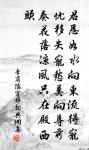 君恩如水向東流得寵
憂移失寵愁莫向尊前
奏花落涼風只在殿西
頭
李商隱宮辭